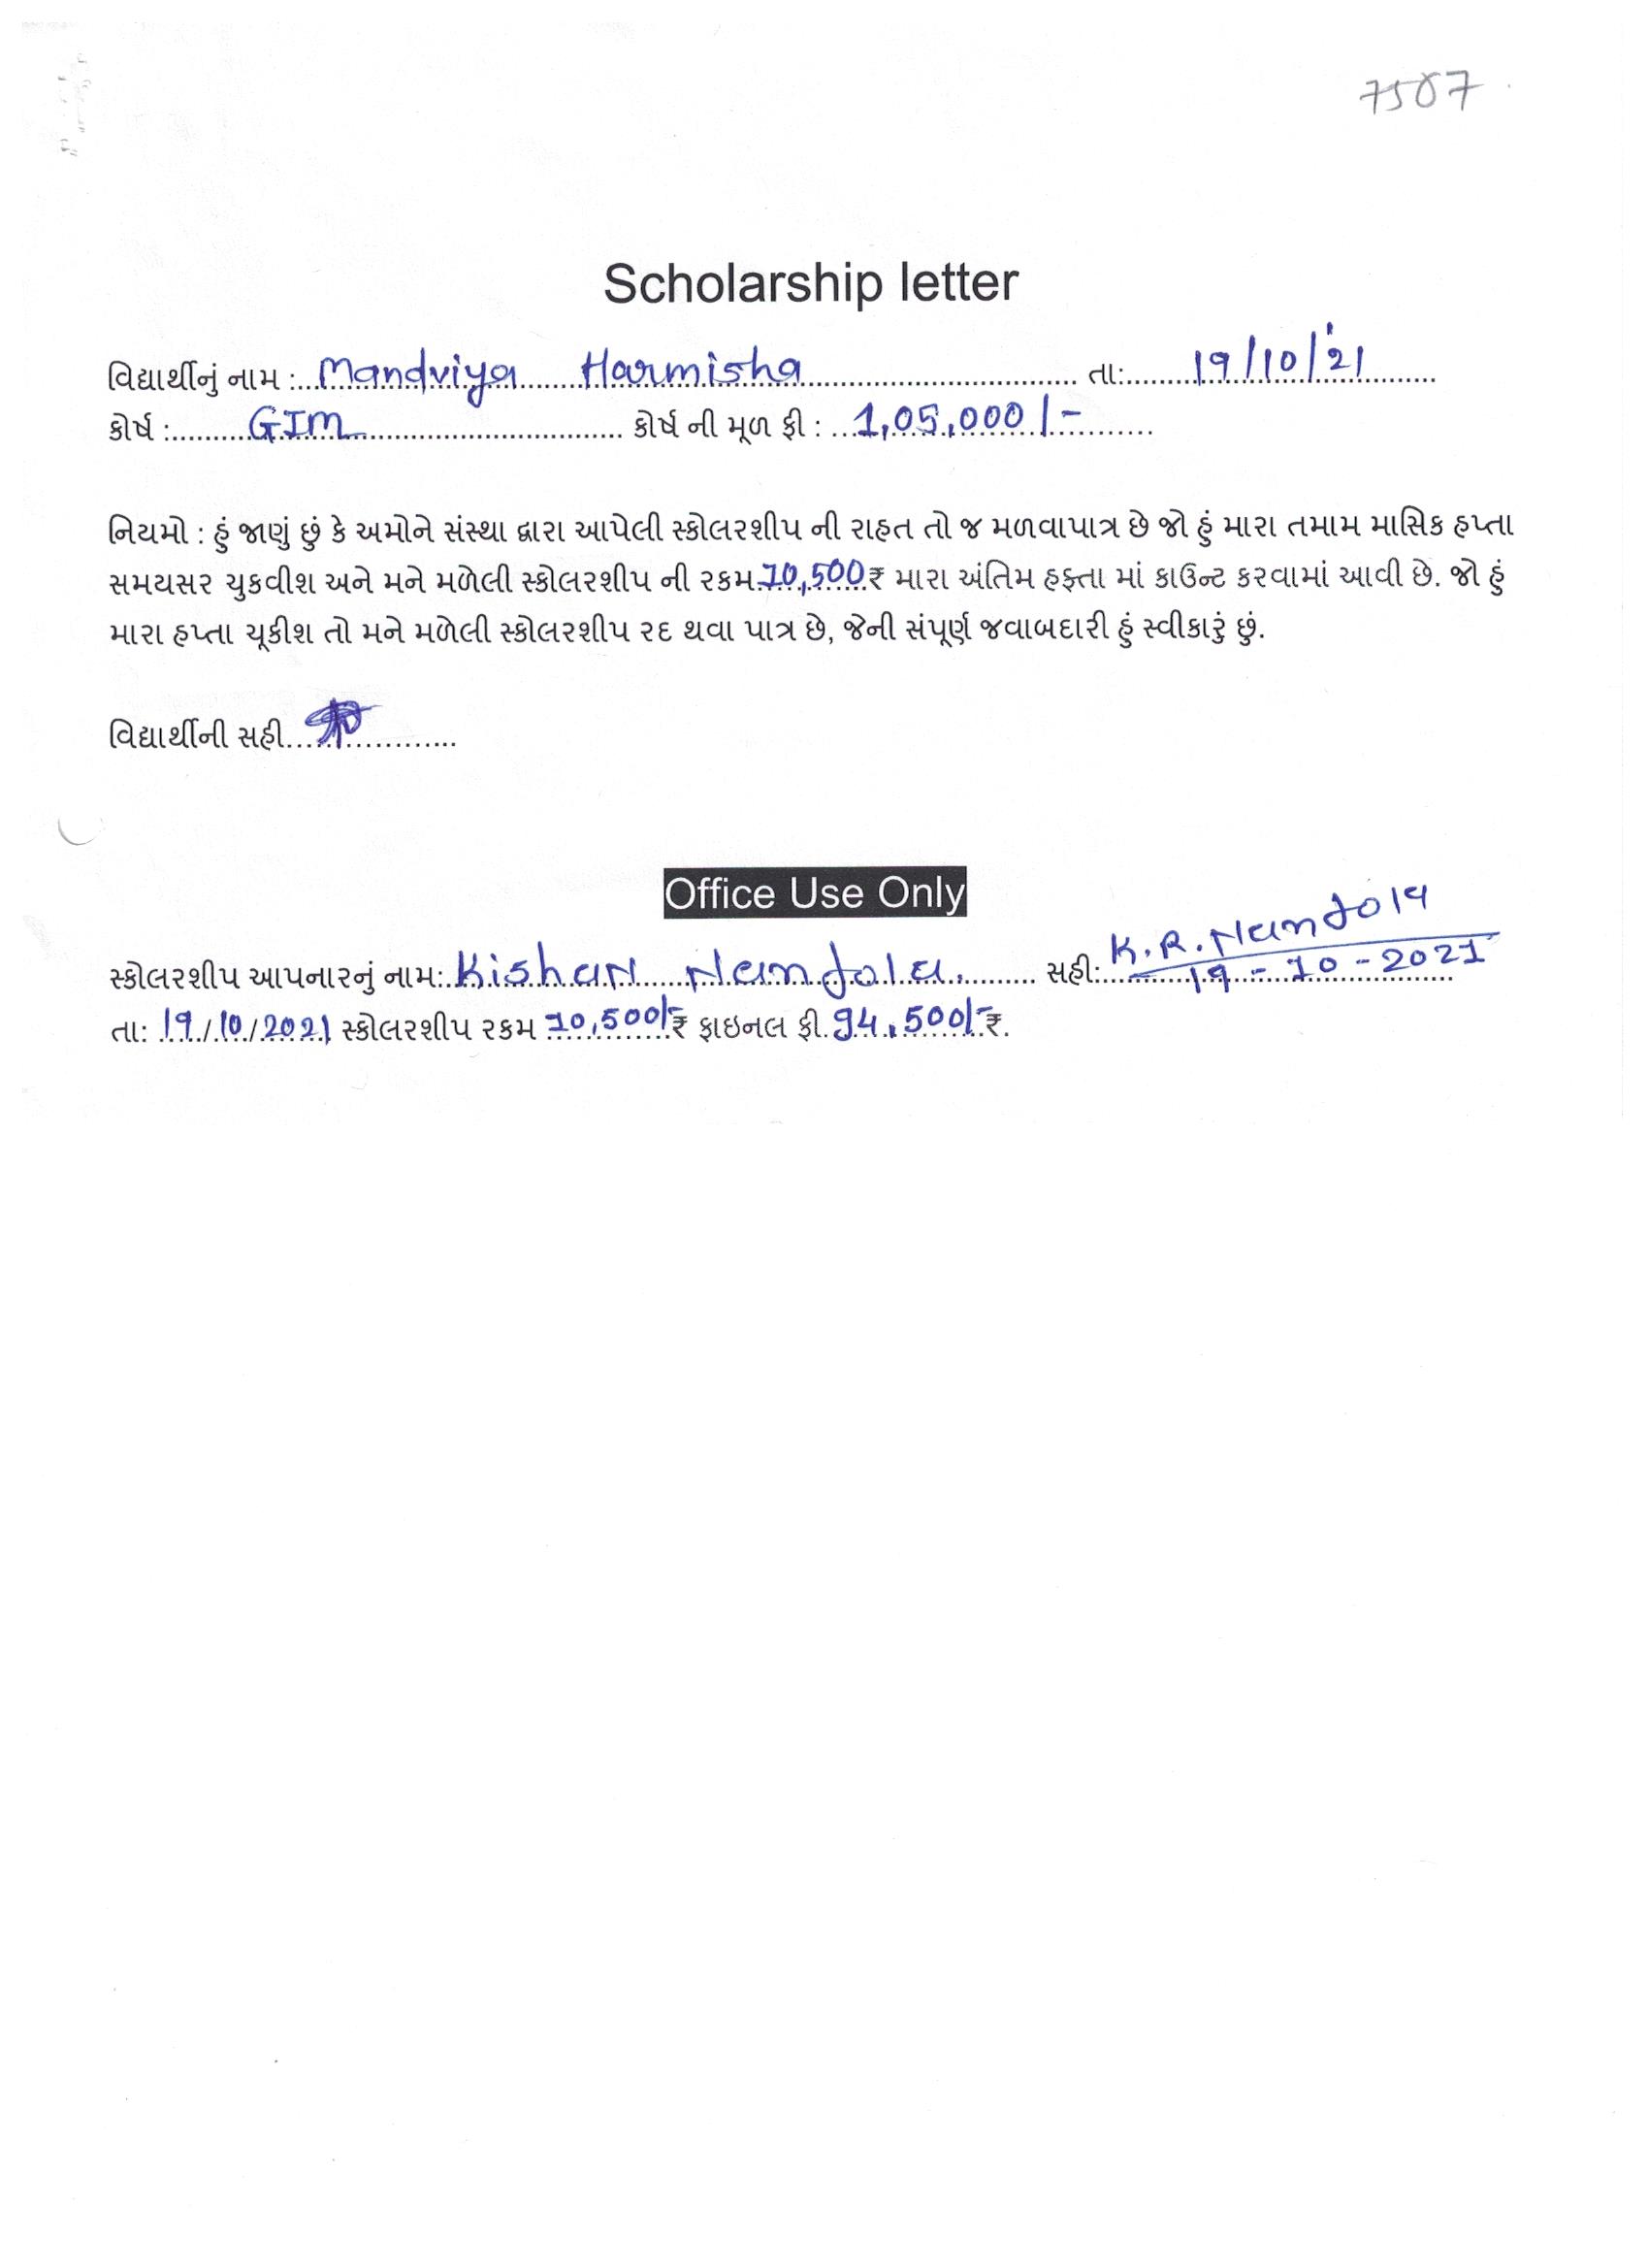 7507
Scholarship letter
વિદ્યાર્થીનું નામ : Mandviya Harmisha તા: 19/10/21
કોર્ષ : GIM કોર્ષ ની મૂળ ફી : 1,05,000/-
નિયમો : હું જાણું છું કે અમોને સંસ્થા દ્વારા આપેલી સ્કોલરશીપ ની રાહત તો જ મળવાપાત્ર છે જો હું મારા તમામ માસિક હપ્તા
સમયસર ચુકવીશ અને મને મળેલી સ્કોલરશીપ ની રકમ 10,500 ₹ મારા અંતિમ હફ્તા માં કાઉન્ટ કરવામાં આવી છે. જો હું
મારા હપ્તા ચૂકીશ તો મને મળેલી સ્કોલરશીપ રદ થવા પાત્ર છે, જેની સંપૂર્ણ જવાબદારી હું સ્વીકારું છું.
વિદ્યાર્થીની સહી
Office Use Only
સ્કોલરશીપ આપનારનું નામ: Kishan Nandola. સહી: K.R.Nandola
19-10-2021
તા: 19/10/2021 સ્કોલરશીપ રકમ 10,500/- ₹ ફાઇનલ ફી 94,500/- ₹.